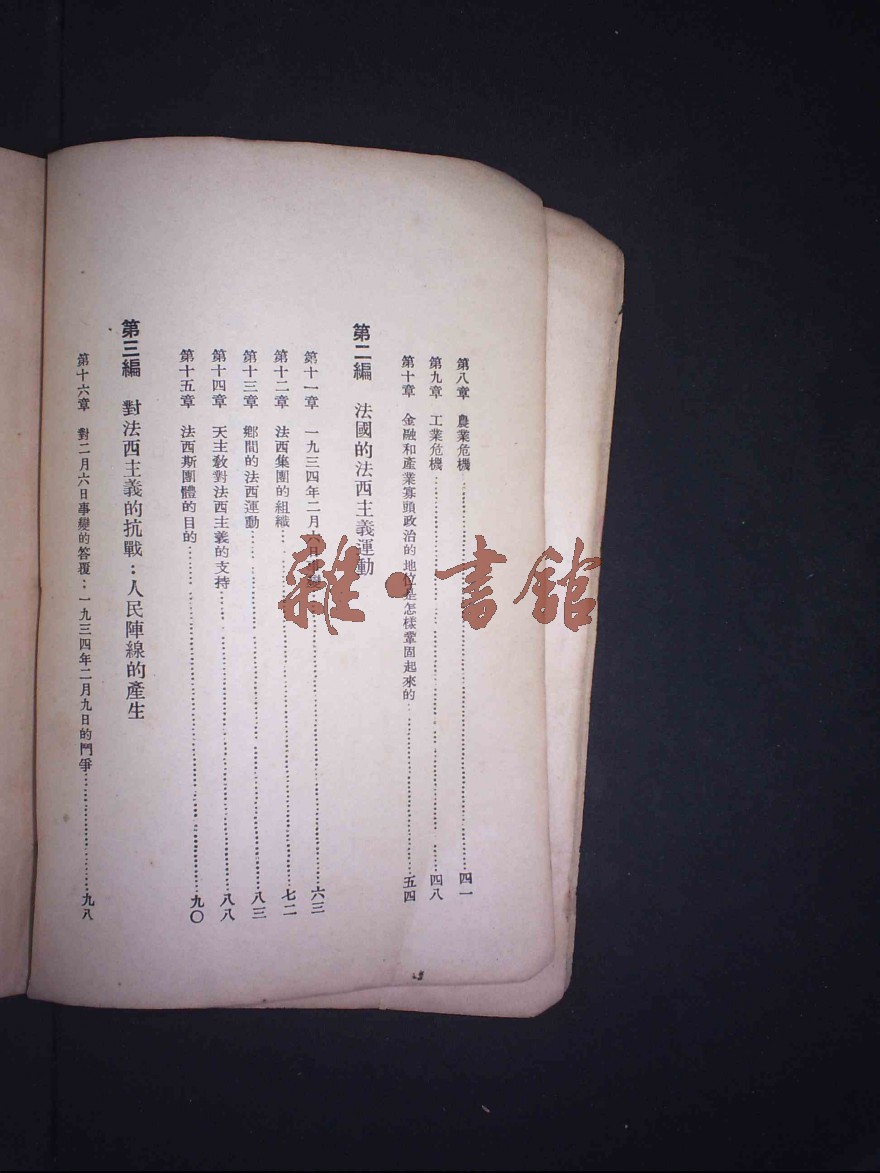 第八章　農業危機……四一
第九章　工業危機……四八
第十章　金融和產業寡頭政治的地位是怎樣鞏固起來的……五四
第二編　法國的法西主義運動
第十一章　一九三四年二月六日事變……六三
第十二章　法西集團的組織……七二
第十三章　鄉間的法西運動……八三
第十四章　天主教對法西主義的支持……八八
第十五章　法西斯團體的目的……九〇
第三編　對法西主義的抗戰：人民陣線的產生
第十六章　對二月六日事變的答覆：一九三四年二月九日的鬥爭……九八
雜·書館